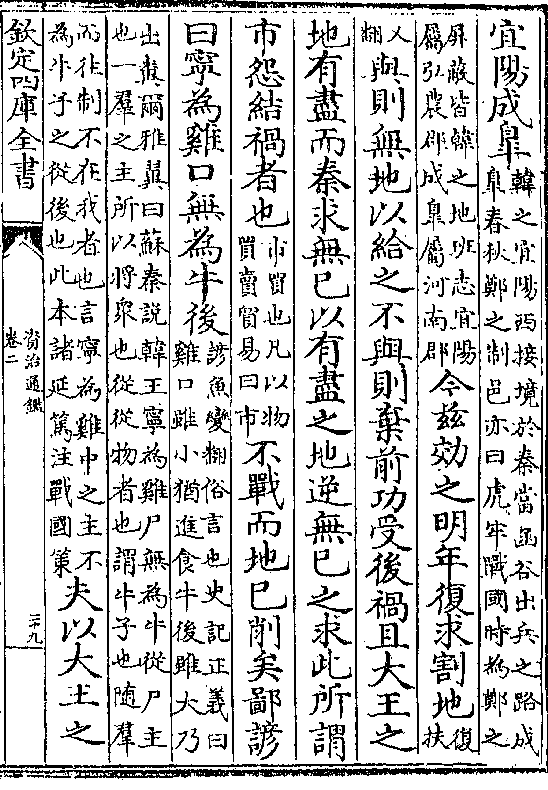 宜陽成臯韓之宜陽西接境於秦當函谷出兵之路成臯春秋鄭之制邑亦曰虎牢戰國時為鄭之
屏蔽皆韓之地班志宜陽屬弘農郡成臯屬河南郡今兹効之明年復求割地復扶
又翻與則無地以給之不與則棄前功受後禍且大王之
地有盡而秦求無已以有盡之地逆無已之求此所謂
市怨結禍者也市買也凡以物買賣貿易曰市不戰而地已削矣鄙諺
曰寧為雞口無為牛後諺魚變翻俗言也史記正義曰雞口雖小猶進食牛後雖大乃
出糞爾雅翼曰蘇秦說韓王寧為雞尸無為牛從尸主也一羣之主所以將衆也從從物者也謂牛子也隨羣
而往制不在我者也言寧為雞中之主不為牛子之從後也此本諸延篤注戰國策夫以大王之
欽定四庫全書
資治通鑑
卷二
三十九